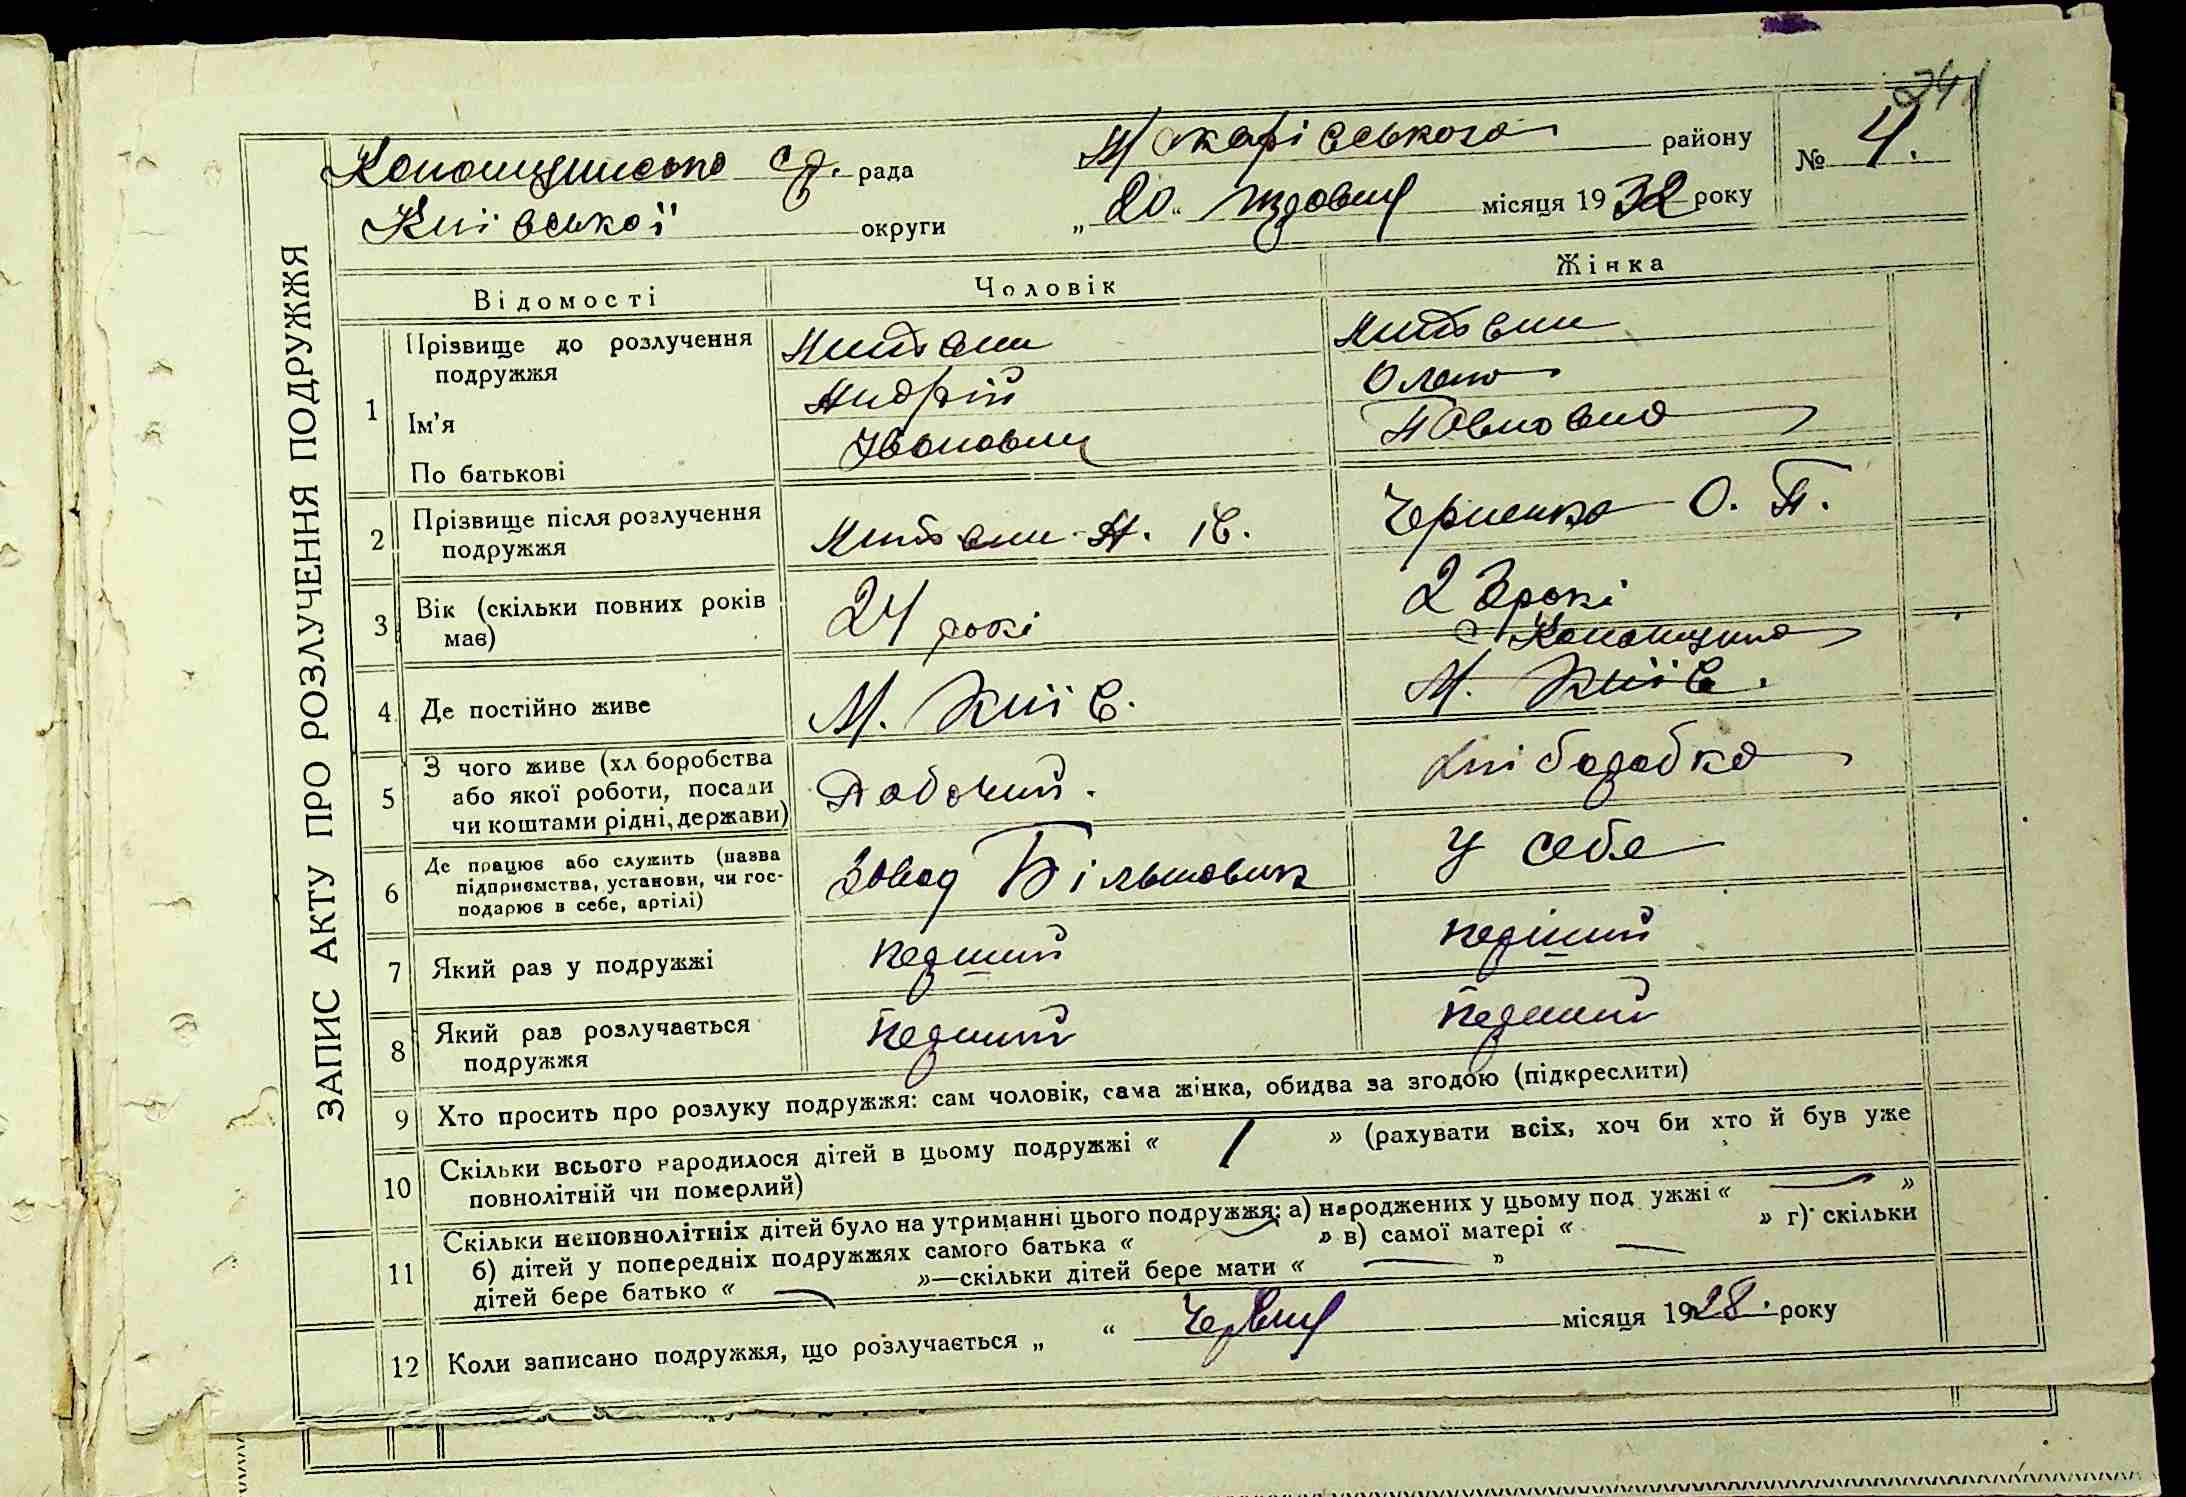 24
Копощинська с/р. рада Макарівського району № 4.
Київської округи „ 20 “ жовтня місяця 1932 року
ЗАПИС АКТУ ПРО РОЗЛУЧЕННЯ ПОДРУЖЖЯ
Відомості Чоловік Жінка
1 Прізвище до розлучення подружжя Литвин Литвин
Ім'я Андрій Олена
По батькові Іванович Павловна
2 Прізвище після розлучення подружжя Литвин А. Ів. Черненко О. П.
3 Вік (скільки повних років має) 24 рокі 23 рокі
с Копощина
4 Де постійно живе М. Київ. М. Київ.
5 З чого живе (хліборобства
або якої роботи, посади
чи коштами рідні, держави) Рабочий. Хліборобка
6 Де працює або служить (назва
підприємства, установи, чи гос-
подарює в себе, артілі) Завод Більшовик У себе
7 Який раз у подружжі первий первий
8 Який раз розлучається
подружжя
9 Хто просить про розлуку подружжя: сам чоловік, сама жінка, обидва за згодою (підкреслити)
10 Скільки всього народилося дітей в цьому подружжі « 1 » (рахувати всіх, хоч би хто й був уже
повнолітній чи померлий)
11 Скільки неповнолітніх дітей було на утриманні цього подружжя: а) народжених у цьому подружжі « — »
б) дітей у попередніх подружжях самого батька « — » в) самої матері « — » г) скільки
дітей бере батько « — »—скільки дітей бере мати « — »
12 Коли записано подружжя, що розлучається „ “ Червня місяця 1928. року